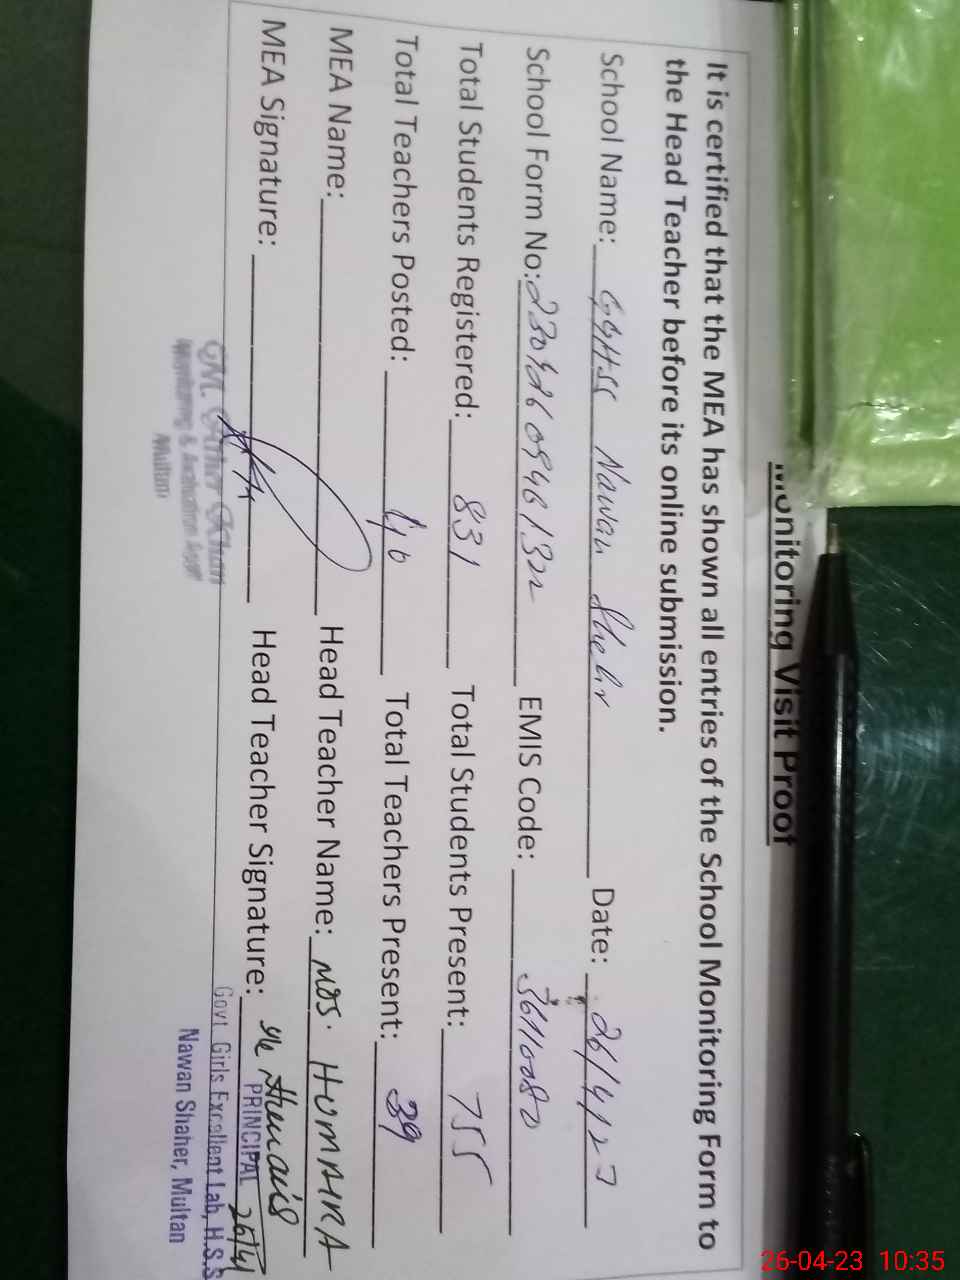 Monitoring Visit Proof
It is certified that the MEA has shown all entries of the School Monitoring Form to
the Head Teacher before its online submission.
School Name: GGHSS Nawan Shehr Date: 26/4/23
School Form No: EMIS Code: 36110080
Total Students Registered: 831 Total Students Present: 755
Total Teachers Posted: 40 Total Teachers Present: 39
MEA Name: Head Teacher Name: MRS. HUMAIRA
MEA Signature: Head Teacher Signature: Humaira
PRINCIPAL 26/4
Govt Girls Excellent Lab, H.S.S
Nawan Shaher, Multan
Monitoring & Evaluation
Multan
26-04-23 10:35